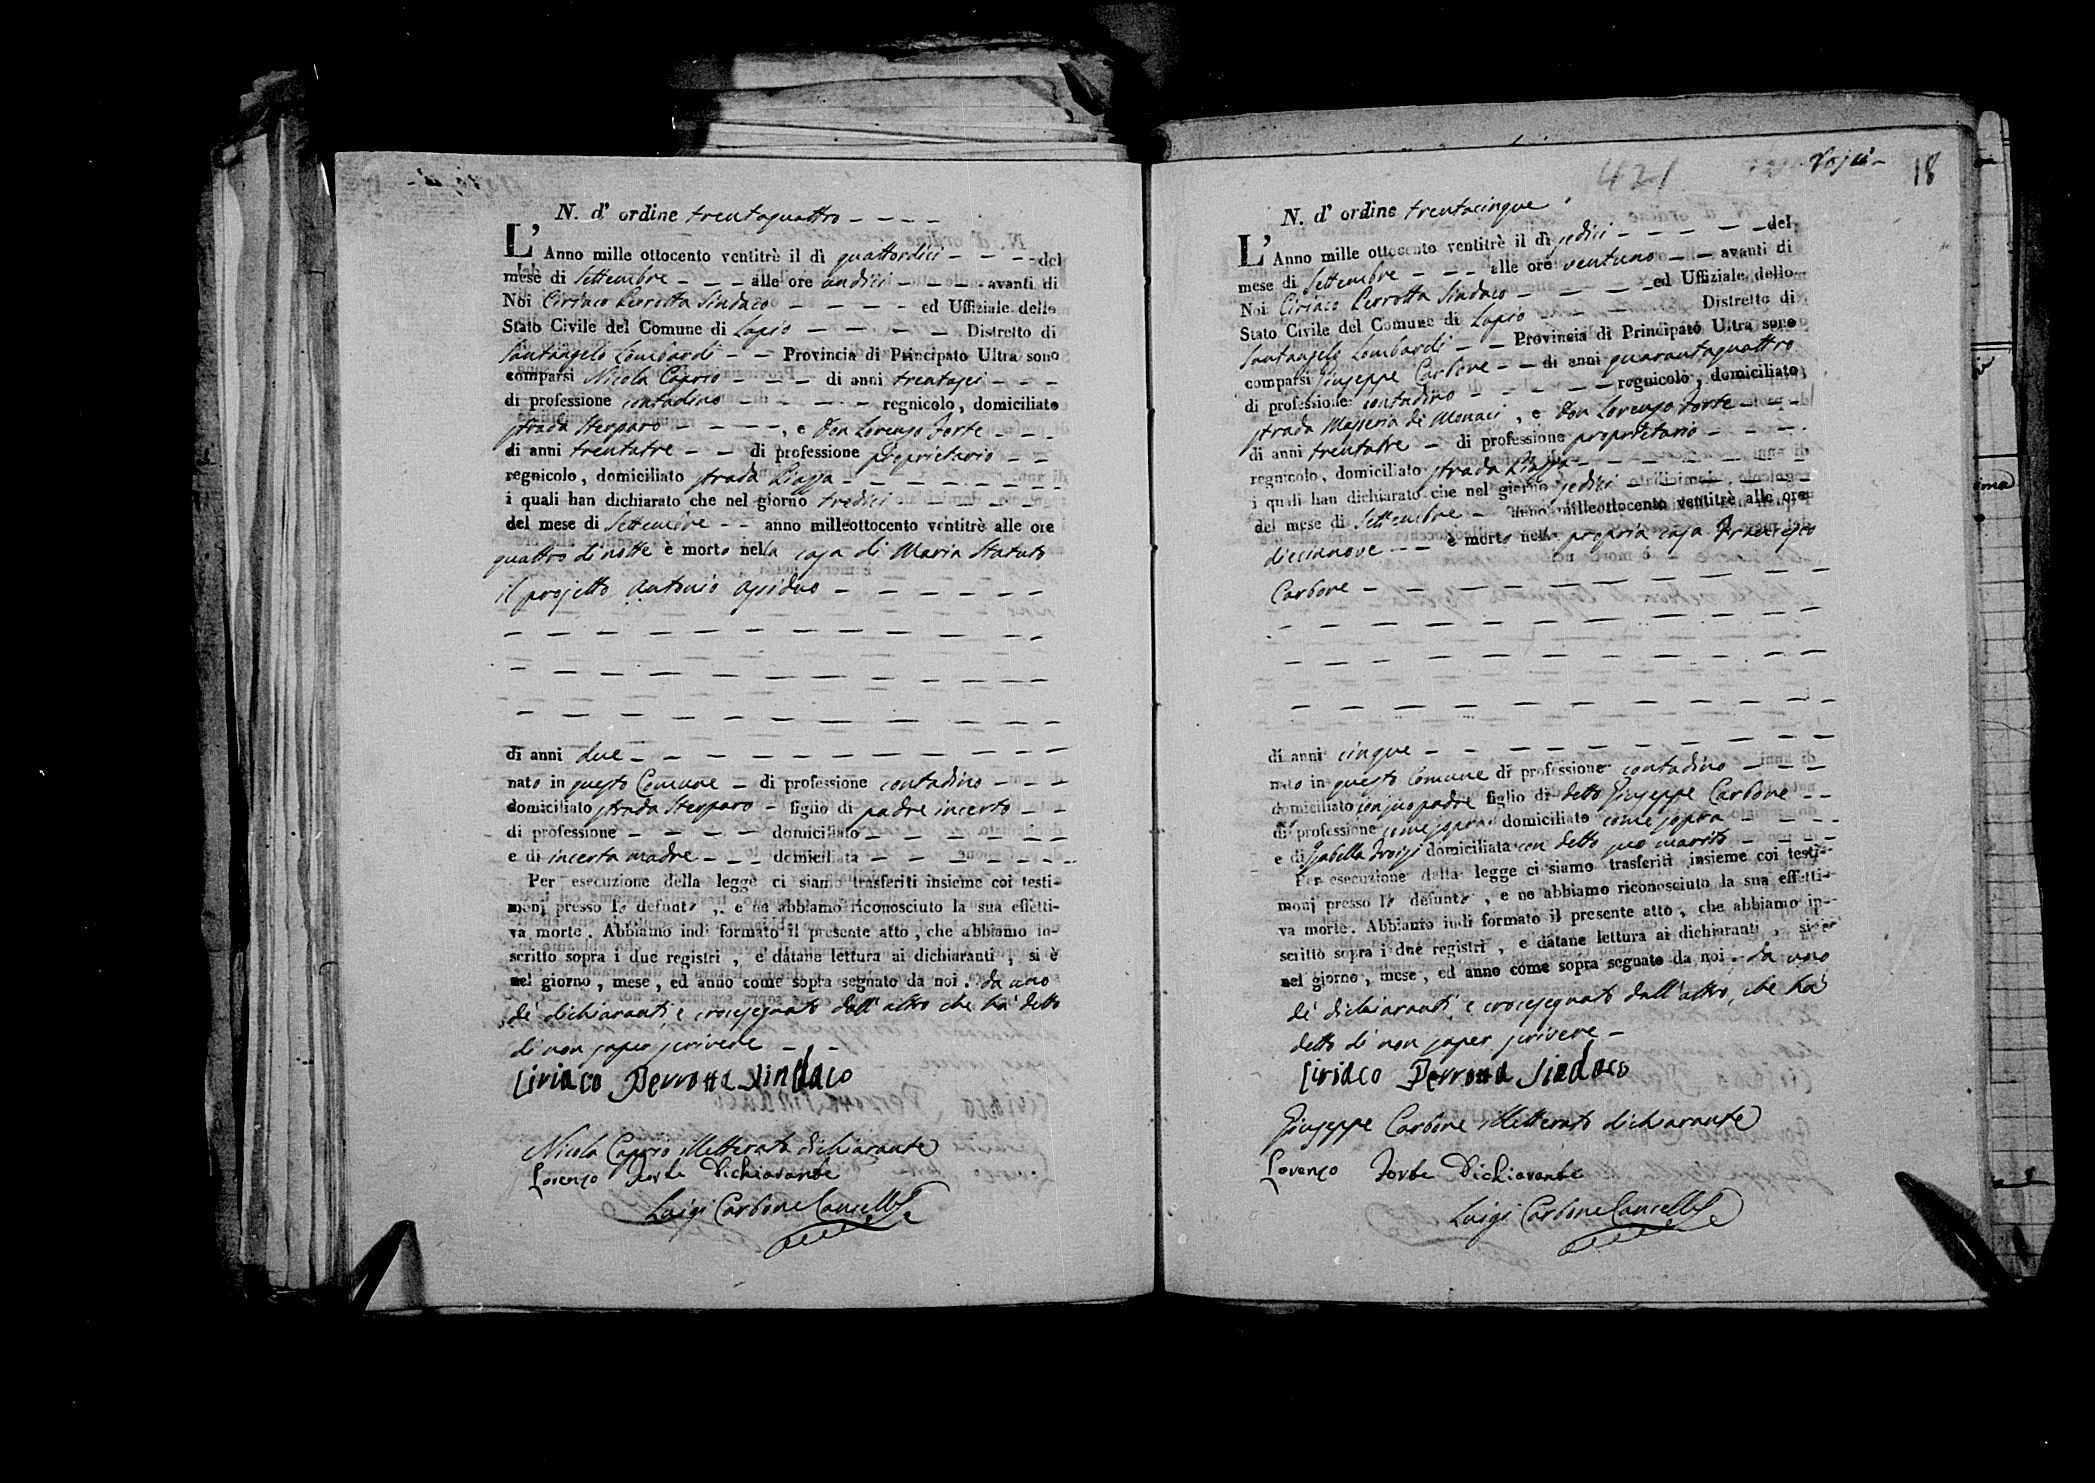 N. d' ordine trentaquattro - - - -
L' Anno mille ottocento ventitrè il dì quattordici - - - - del
mese di Settembre - - - alle ore undici - - - - avanti di
Noi Ciriaco Perrotta Sindaco - - - - - ed Uffiziale dello
Stato Civile del Comune di Lapio - - - - - Distretto di
Santangelo Lombardi - - Provincia di Principato Ultra sono
comparsi Nicola Caprio - - - - di anni trentasei - - -
di professione contadino - - - - - regnicolo, domiciliato
strada Sterparo - - - - -, e Don Lorenzo Forte - - -
di anni trentatre - - di professione proprietario - -
regnicolo, domiciliato strada Piazza - - - - - - - -
i quali han dichiarato che nel giorno tredici - - - - -
del mese di Settembre - - anno milleottocento ventitrè alle ore
quattro di notte è morto nella casa di Maria Statuto
il projetto Antonio Assiduo - - - - - -
di anni due - - - - - - - - - - -
nato in questo Comune - di professione contadino - - -
domiciliato strada Sterparo - figlio di padre incerto - -
di professione - - - - domiciliato - - - - -
e di incerta madre - - - domiciliata - - - - - -
Per esecuzione della legge ci siamo trasferiti insieme coi testi-
monj presso lo defunto, e ne abbiamo riconosciuto la sua effetti-
va morte. Abbiamo indi formato il presente atto, che abbiamo in-
scritto sopra i due registri, e dátane lettura ai dichiaranti, si è
nel giorno, mese, ed anno come sopra segnato da noi. da uno
de' dichiaranti, e crocesegnato dall'altro che ha detto
di non saper scrivere - -
Ciriaco Perrotta Sindaco
Nicola Caprio illetterato dichiarante
Lorenzo Forte Dichiarante
Luigi Carbone Cancell.
421
18
N. d' ordine trentacinque
L' Anno mille ottocento ventitrè il dì sedici - - - - - del
mese di Settembre - - - alle ore ventuno - - avanti di
Noi Ciriaco Perrotta Sindaco - - - - ed Uffiziale dello
Stato Civile del Comune di Lapio - - - Distretto di
Santangelo Lombardi - - Provincia di Principato Ultra sono
comparsi Giuseppe Carbone - - di anni quarantaquattro
di professione contadino - - - - - regnicolo, domiciliato
strada Masseria de Monaci, e Don Lorenzo Forte - - -
di anni trentatre - di professione proprietario - - -
regnicolo, domiciliato strada Piazza - - - - - - -
i quali han dichiarato che nel giorno sedici
del mese di Settembre - anno milleottocento ventitrè alle ore
diecinnove - - - è morto nella propria casa Francesco
Carbone - - - - - - - - - - -
di anni cinque - - - - - - - - - -
nato in questo Comune di professione contadino - - -
domiciliato con suo padre figlio di detto Giuseppe Carbone - -
di professione come sopra domiciliato come sopra - - - -
e di Isabella Troisi domiciliata con detto suo marito - - -
Per esecuzione della legge ci siamo trasferiti insieme coi testi-
monj presso lo defunto, e ne abbiamo riconosciuto la sua effetti-
va morte. Abbiamo indi formato il presente atto, che abbiamo in-
scritto sopra i due registri, e dátane lettura ai dichiaranti, si è
nel giorno, mese, ed anno come sopra segnato da noi. da uno
de' dichiaranti, e crocesegnato dall'altro, che ha
detto di non saper scrivere -
Ciriaco Perrotta Sindaco
Giuseppe Carbone illetterato dichiarante
Lorenzo Forte Dichiarante
Luigi Carbone Cancell.